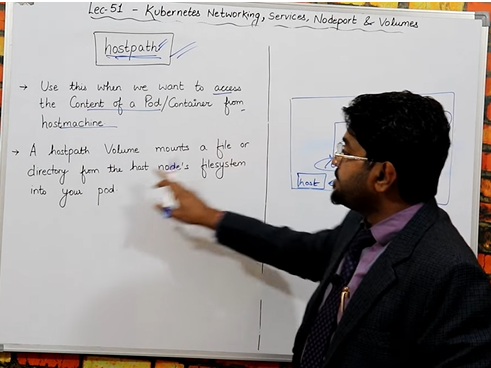 Lec-51 - Kubernetes Networking, Services, Nodeport & Volumes
hostpath
→ Use this when we want to access
the Content of a Pod/Container from
hostmachine
→ A hostpath Volume mounts a file or
directory from the host node's filesystem
into your pod.
host